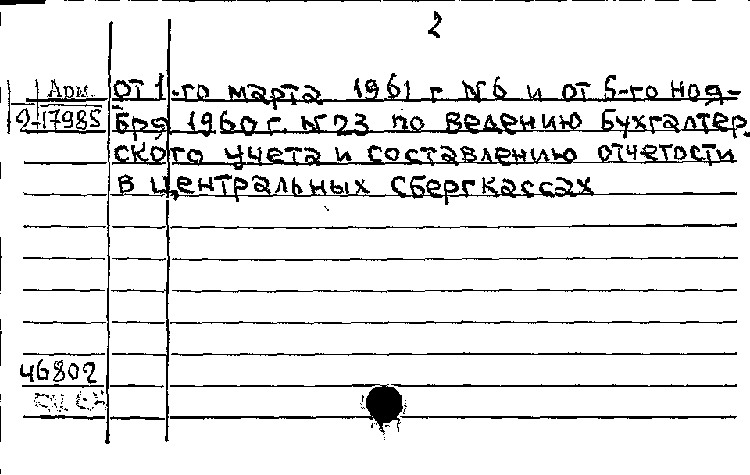 2
Арм. от 1-го марта 1961 г N6 и от 5-го ноя-
2-17985 бря 1960г. N23 по ведению бухгалтер.
ского учета и составлению отчетости
в центральных сбергкассах
46802